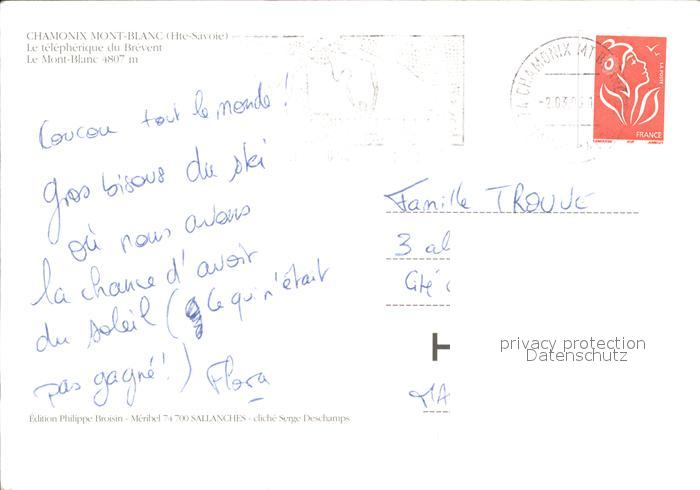 CHAMONIX MONT-BLANC (Hte-Savoie)
Le téléphérique du Brévent
Le Mont-Blanc 4807 m
Coucou tout le monde !
Gros bisous du ski
où nous avons
la chance d'avoir
du soleil ( ce qui n'était
pas gagné ! ) Flora
Édition Philippe Broisin - Méribel 74 700 SALLANCHES - cliché Serge Deschamps
CHAMONIX MT
LA POSTE
FRANCE
Famille TROUVE
3 al
Cité
privacy protection
Datenschutz
MA